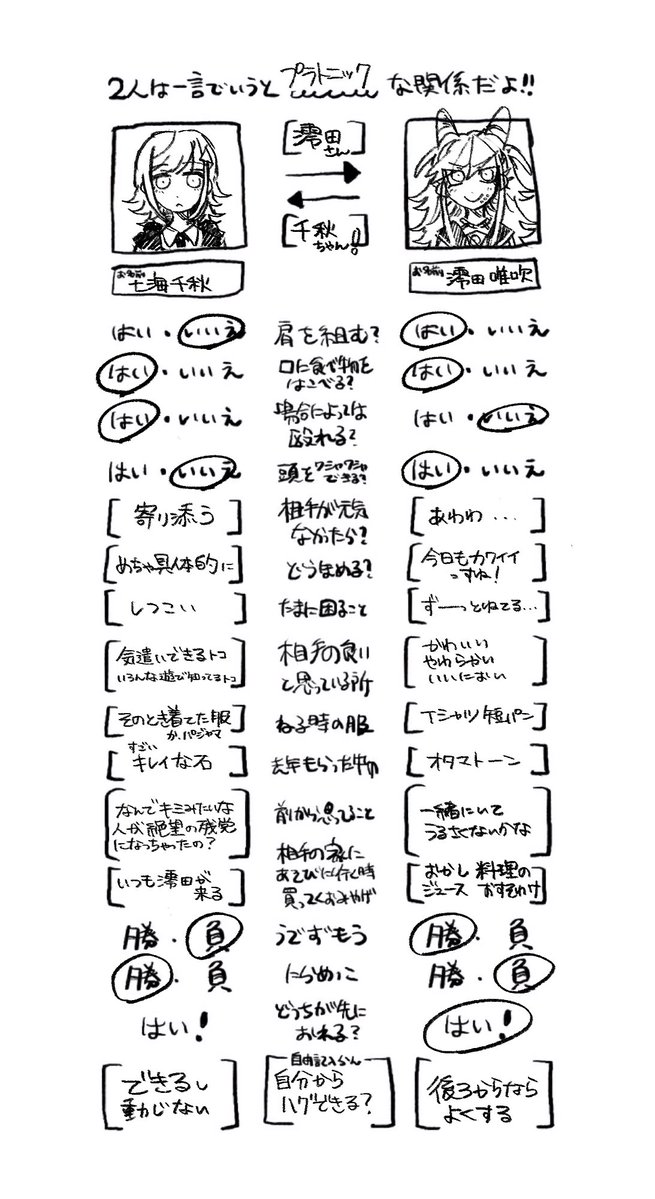 2人は一言でいうとプラトニックな関係だよ!!
[澪田さん]
[千秋ちゃん!]
お名前 七海千秋
お名前 澪田唯吹
はい・いいえ 肩を組む? はい・いいえ
はい・いいえ 口に食べ物を はい・いいえ
はこべる?
はい・いいえ 場合によっては はい・いいえ
殴れる?
はい・いいえ 頭をワシャワシャできる? はい・いいえ
[寄り添う] 相手が元気 [あわわ...]
なかったら?
[めちゃ具体的に] どうほめる? [今日もカワイイ
っすね!]
[しつこい] たまに困ること [ずーっとねてる...]
[気遣いできるトコ
いろんな遊び知ってるトコ]
相手の良い
と思っている所
[かわいい
やわらかい
いいにおい]
[そのとき着てた服
か、パジャマ]
ねる時の服
[Tシャツ 短パン]
[すごい
キレイな石]
去年もらった物
[オタマトーン]
[なんでキミみたいな
人が絶望の残党
になっちゃったの?]
前から思ってること
[一緒にいて
うるさくないかな]
[いつも澪田が
来る]
相手の家に
あそびに行く時
買ってくおみやげ
[おかし 料理の
ジュース おすそわけ]
勝・負 うでずもう 勝・負
勝・負 にらめっこ 勝・負
はい! どっちが先に はい!
おれる?
[できるし
動じない]
自由記入らん
[自分から
ハグできる?]
[後ろからなら
よくする]